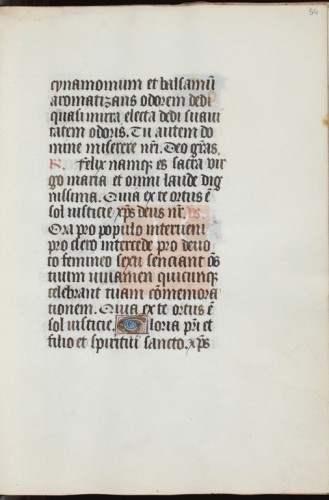 54
cynamomum et balsamū
aromatizans odorem dedi
quasi mirra electa dedi suaui
tatem odoris. Tu autem do
mine miserere nr̄i. Deo grās.
R. Felix namqꝫ es sacra vir
go maria et omni laude dig
nissima. Quia ex te ortus ē
sol iusticie xp̄s deus nr̄. v̄s.
Ora pro populo interueni
pro clero intercede pro deuo
to femineo sexu senciant om̄s
tuum iuuamen quicumqꝫ
celebrant tuam cōmemora
tionem. Quia ex te ortus ē
sol iusticie. Gloria pr̄i et
filio et spiritui sancto. xp̄s